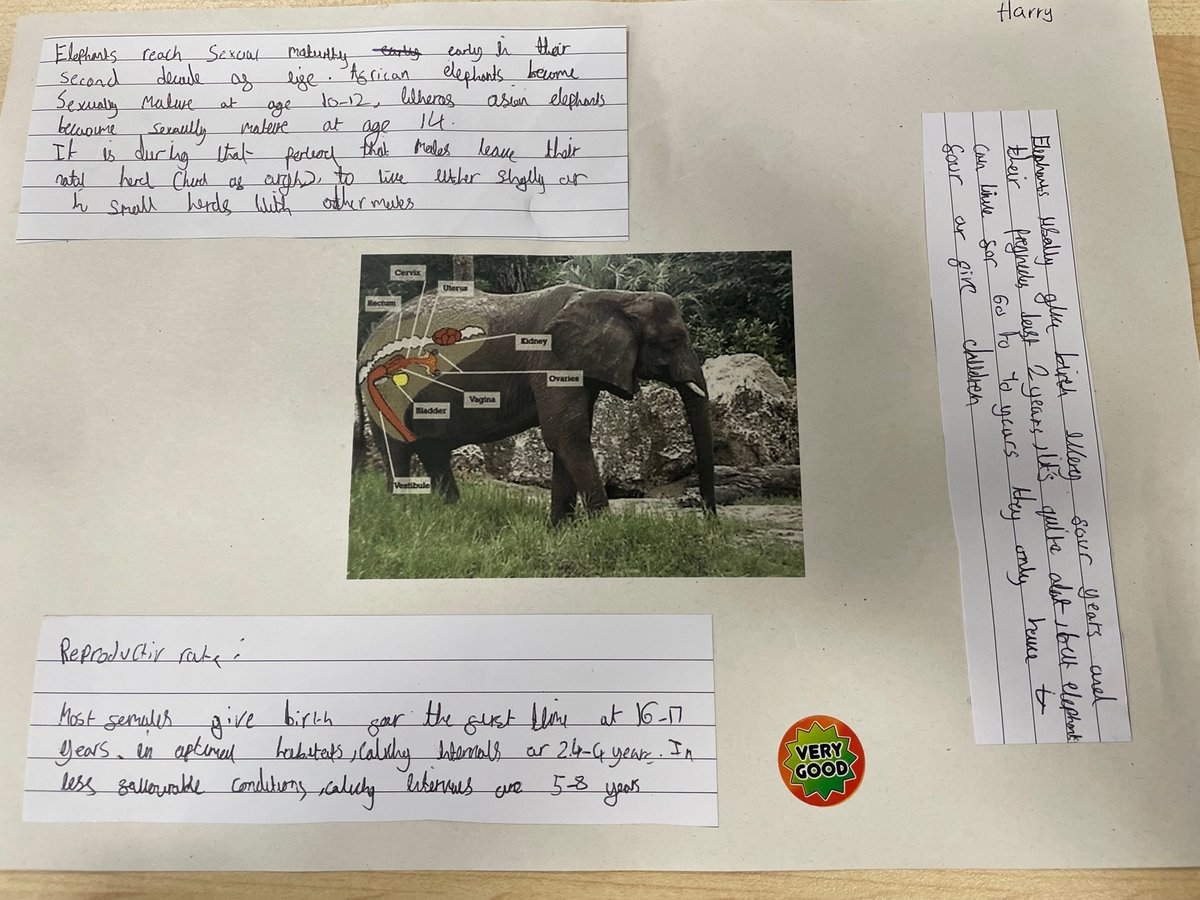 Harry
Elephants reach Sexual maturity early early in their
second decade of age. African elephants become
Sexually mature at age 10-12, Wheras asian elephants
become sexually mature at age 14.
It is during that period that males leave their
natal herd to live either singly or
in small herds with other males
Elephants Usually give birth every four years and
their pregnancies last 2 years, it's quite alot, but elephants
can live for 60 to 70 years they only have
four or five children
Cervix
Uterus
Rectum
Kidney
Ovaries
Vagina
Bladder
Vestibule
Reproductiv rate:
Most females give birth for the first time at 16-17
years. in optimal habitats, calving intervals are 2.4-4 years. In
less favourable conditions, calving intervals are 5-8 years
VERY
GOOD